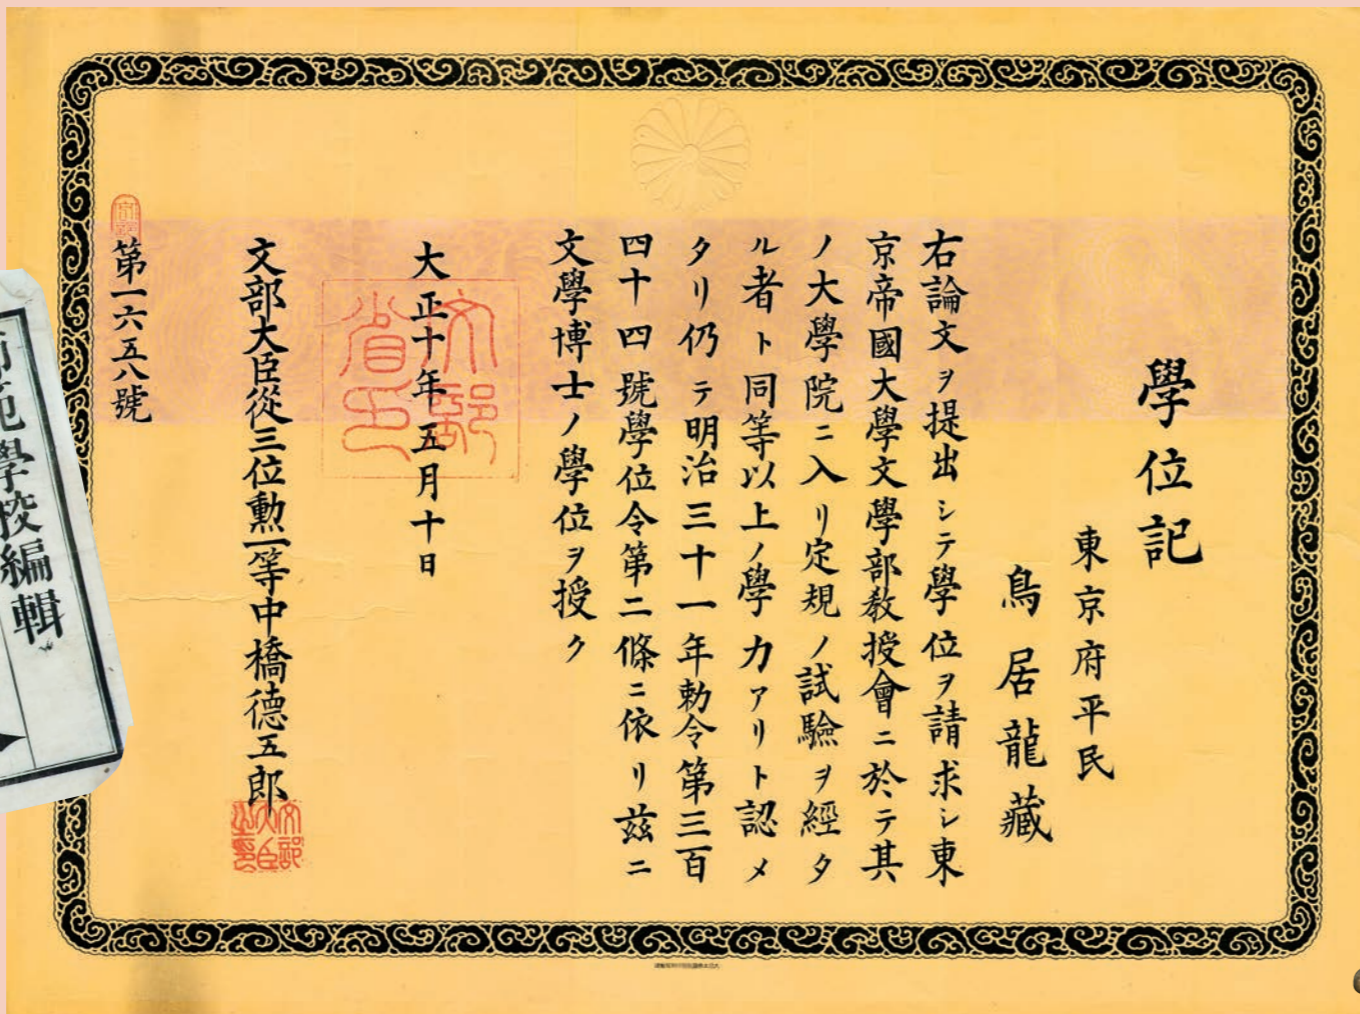 學位記
東京府平民
鳥居龍藏
右論文ヲ提出シテ學位ヲ請求シ東
京帝國大學文學部教授會ニ於テ其
ノ大學院ニ入リ定規ノ試驗ヲ經タ
ル者ト同等以上ノ學力アリト認メ
タリ仍テ明治三十一年勅令第三百
四十四號學位令第二條ニ依リ茲ニ
文學博士ノ學位ヲ授ク
大正十年五月十日
文部省印
文部大臣從三位勲一等中橋德五郎
文部大臣之印
第一六五八號
範學校編輯